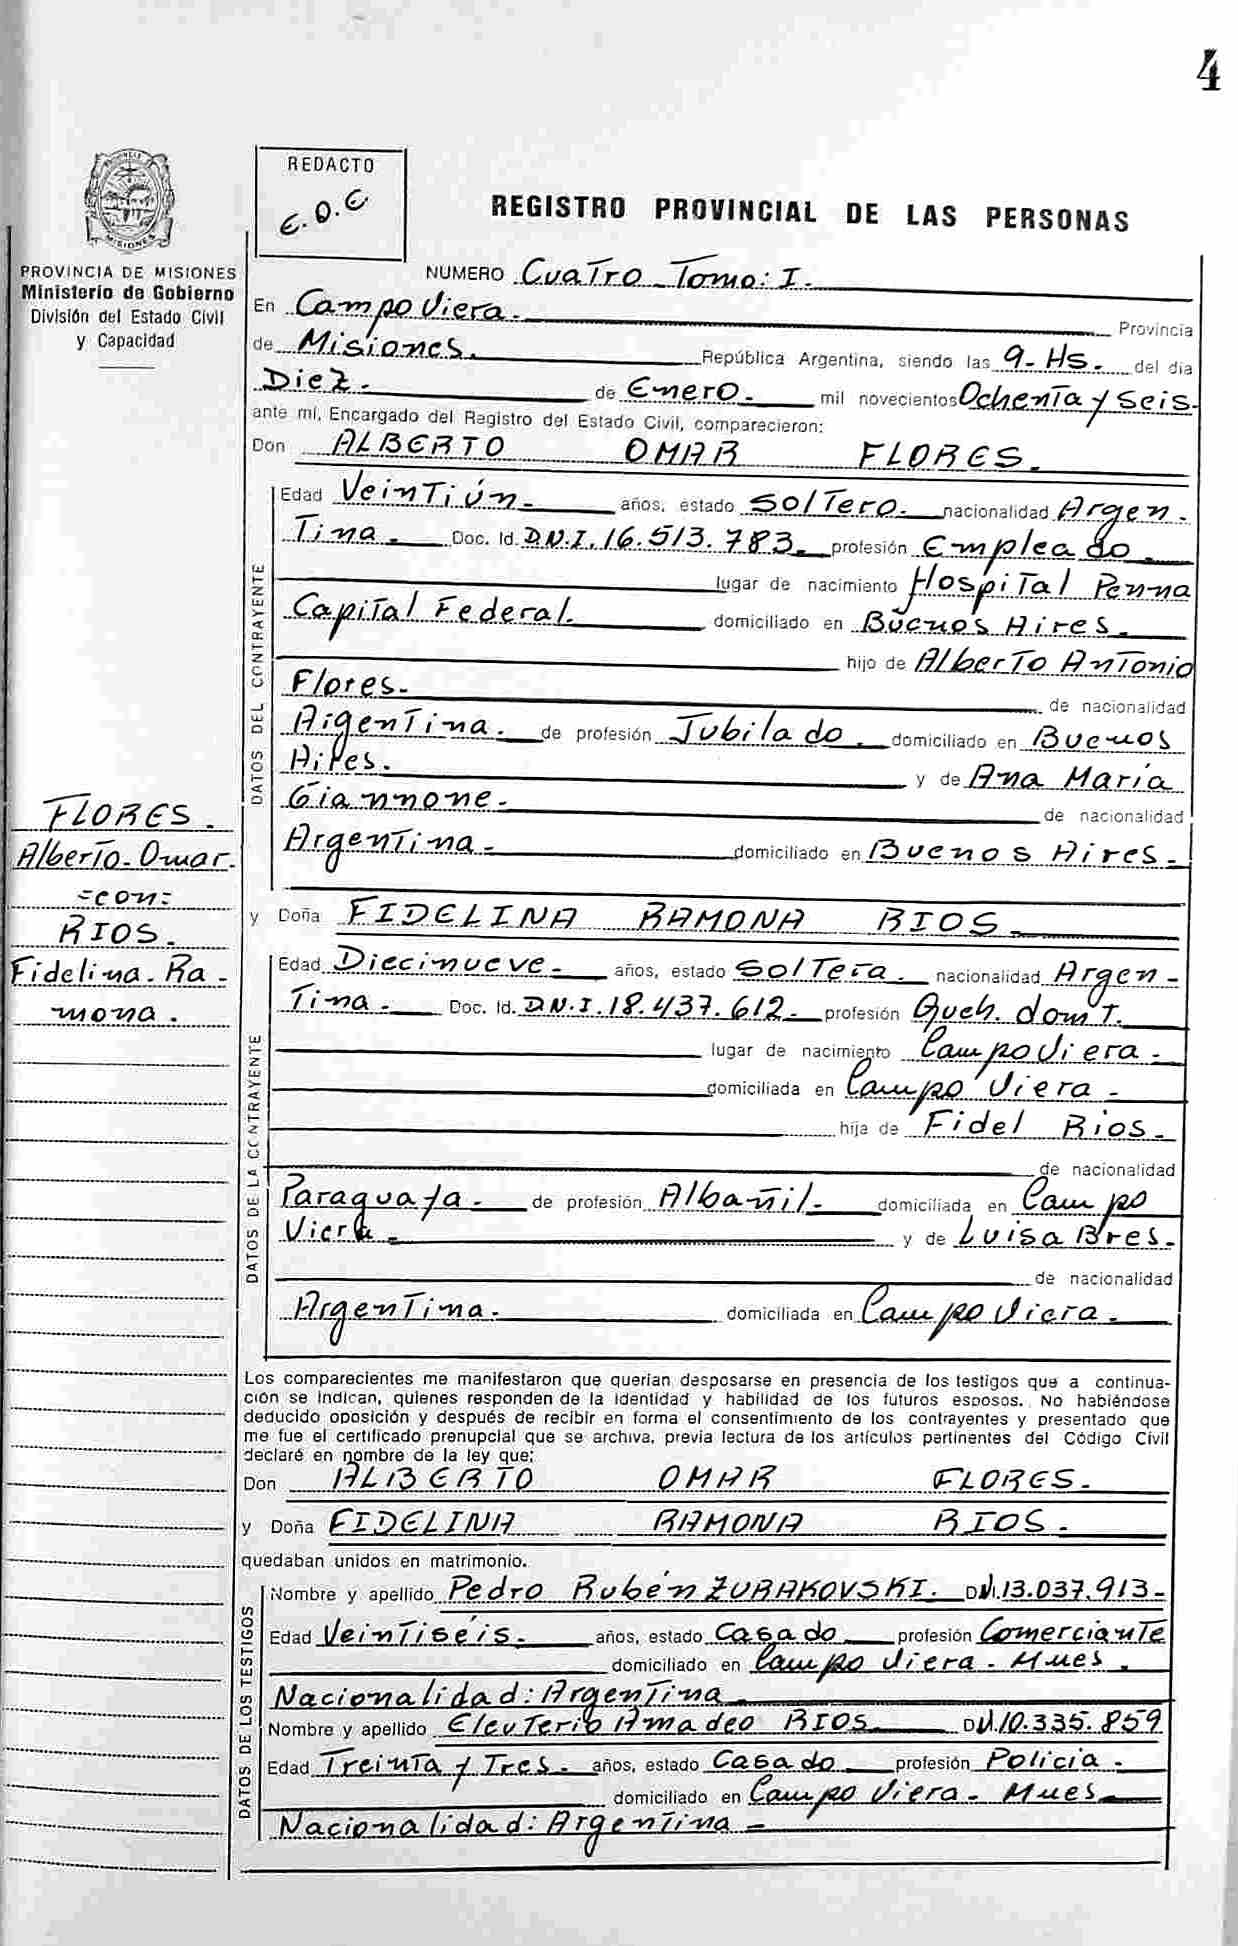 4
REDACTO
E.O.E
REGISTRO PROVINCIAL DE LAS PERSONAS
PROVINCIA DE MISIONES
Ministerio de Gobierno
División del Estado Civil
y Capacidad
NUMERO Cuatro - Tomo: I.
En Campo Viera. Provincia
de Misiones. República Argentina, siendo las 9-Hs. del dia
Diez. de Enero. mil novecientos Ochenta y Seis.
ante mí, Encargado del Registro del Estado Civil, comparecieron:
Don ALBERTO OMAR FLORES.
DATOS DEL CONTRAYENTE
Edad Veintiún. años, estado Soltero. nacionalidad Argen-
tina. Doc. Id. D.N.I. 16.513.783. profesión Empleado.
lugar de nacimiento Hospital Penna
Capital Federal. domiciliado en Buenos Aires.
hijo de Alberto Antonio
Flores. de nacionalidad
Argentina. de profesión Jubilado. domiciliado en Buenos
Aires. y de Ana María
Giannone. de nacionalidad
Argentina. domiciliado en Buenos Aires.
FLORES.
Alberto-Omar.
=con=
RIOS.
Fidelina-Ra-
mona.
y Doña FIDELINA RAMONA RIOS.
DATOS DE LA CONTRAYENTE
Edad Diecinueve. años, estado Soltera. nacionalidad Argen-
tina. Doc. Id. D.N.I. 18.437.612. profesión Queh. domt.
lugar de nacimiento Campo Viera.
domiciliada en Campo Viera.
hija de Fidel Rios.
de nacionalidad
Paraguaya. de profesión Albañil. domiciliada en Campo
Viera y de Luisa Bres.
de nacionalidad
Argentina. domiciliada en Campo Viera.
Los comparecientes me manifestaron que querían desposarse en presencia de los testigos que a continua-
ción se indican, quienes responden de la identidad y habilidad de los futuros esposos. No habiéndose
deducido oposición y después de recibir en forma el consentimiento de los contrayentes y presentado que
me fue el certificado prenupcial que se archiva, previa lectura de los artículos pertinentes del Código Civil
declaré en nombre de la ley que:
Don ALBERTO OMAR FLORES.
y Doña FIDELINA RAMONA RIOS.
quedaban unidos en matrimonio.
DATOS DE LOS TESTIGOS
Nombre y apellido Pedro Rubén ZURAKOVSKI. DNI. 13.037.913-
Edad Veintiséis. años, estado Casado profesión Comerciante
domiciliado en Campo Viera. Mnes.
Nacionalidad: Argentina
Nombre y apellido Eleuterio Amadeo RIOS. DNI. 10.335.859
Edad Treinta y Tres. años, estado Casado profesión Policia.
domiciliado en Campo Viera. Mnes
Nacionalidad: Argentina